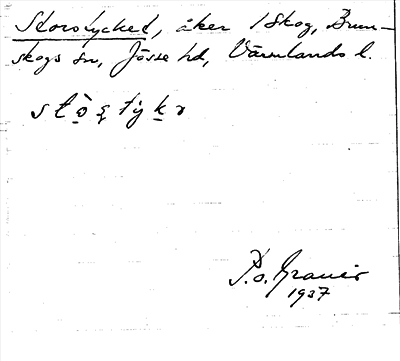 Storstycket, åker i Skog, Brun-
skogs sn, Jösse hd, Värmlands l.
P. O. Graner
1937